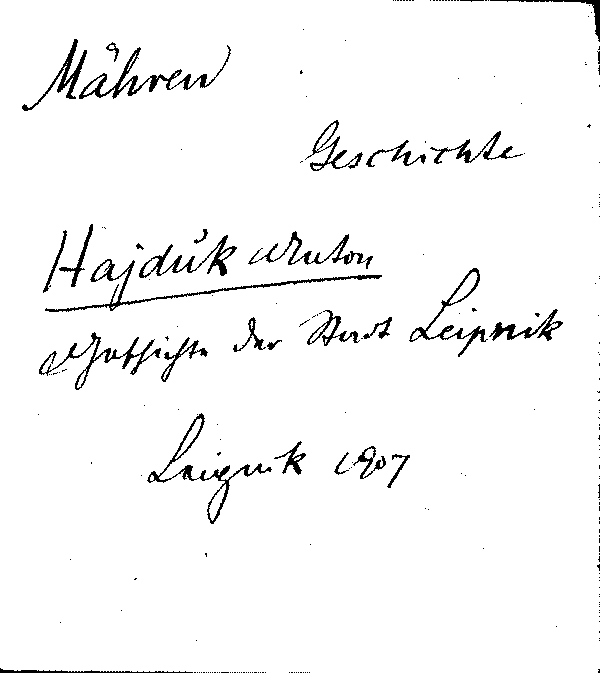 Mähren
Geschichte
Hajduk Anton
Geschichte der Stadt Leipnik
Leipnik 1907